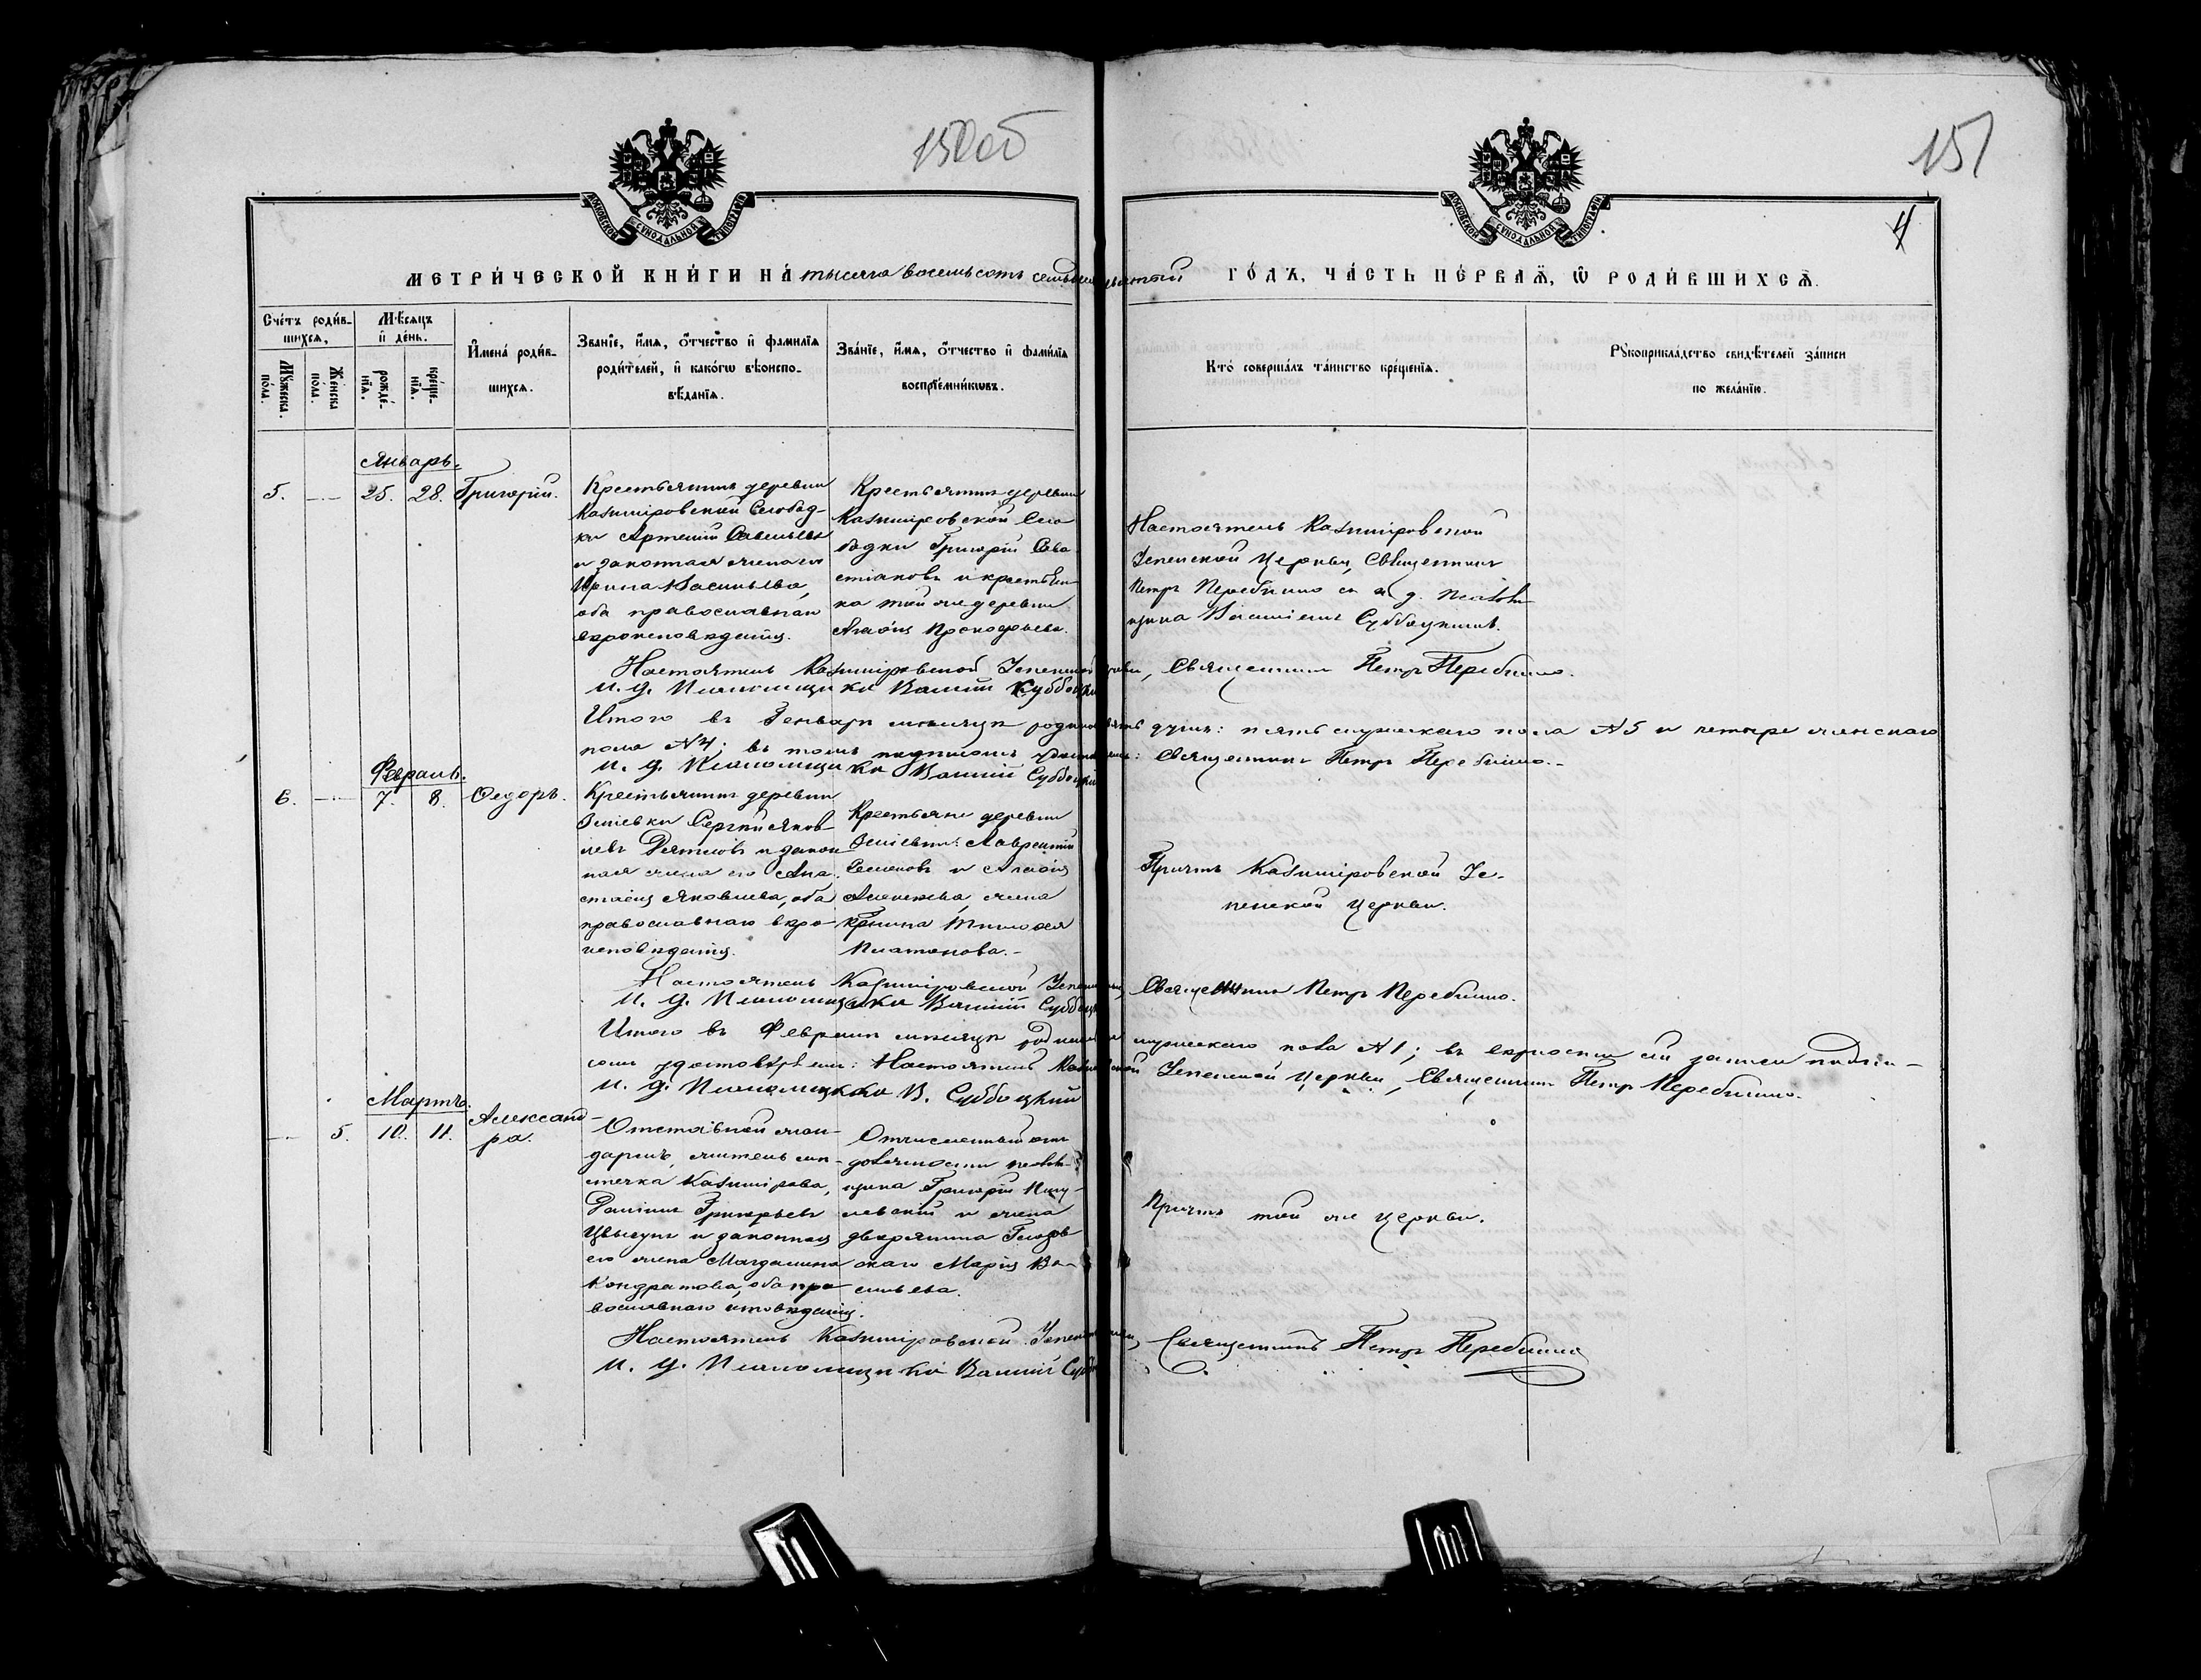 150об
151
4
МОСКОВСКОЙ СѴНОДАЛЬНОЙ ТИПОГРАФІИ
МОСКОВСКОЙ СѴНОДАЛЬНОЙ ТИПОГРАФІИ
МЕТРИ́ЧЕСКОЙ КНИ́ГИ НА́ тысяча восемьсотъ семьде
ГО́ДЪ, ЧА́СТЬ ПЕ́РВАѦ, Ѿ РОДИ́ВШИХСѦ.
Сче́тъ роди́в-
шихсѧ,
Мѣ́сѧцъ
и҆ де́нь.
Мꙋ́жеска
по́ла.
Же́нска
по́ла.
рожде́-
нїѧ.
креще́-
нїѧ.
И҆мена́ роди́в-
шихсѧ.
Зва́нїе, и҆́мѧ, ѻ҆́тчество и҆ фами́лїѧ
роди́телей, и҆ како́гѡ вѣ́роиспо-
вѣ́данїѧ.
Зва́нїе, и҆́мѧ, ѻ҆́тчество и҆ фами́лїѧ
воспрїе́мникѡвъ.
Кто̀ соверша́лъ та́инство креще́нїѧ.
Рꙋкоприкла́дство свидѣ́телей за́писи
по жела́нїю.
Январь.
5. — 25. 28. Григорій.
Крестьянинъ деревни
Казимировской Слобод-
ки Артемій Савельевъ
и законная жена его
Ирина Васильева,
оба православнаго
вѣроисповѣданія.
Крестьянинъ деревни
Казимировской Сло
бодки Григорій Сева
стіановъ и крестьян
ка той же деревни
Агафія Прокофьева.
Настоятель Казимировской
Успенской Церкви, Священникъ
Петръ Перебилло съ и. д. псалом
щика Василіемъ Субботскимъ.
Настоятель Казимировской Успенской церкви, Священникъ Петръ Перебилло.
И. д. Псаломщика Василій Субботскій
Итого въ Генварѣ мѣсяцѣ родилось девять душъ: пять мужескаго пола №5 и четыре женскаго
пола №4; въ томъ подписомъ Священникъ Петръ Перебилло.
И. д. Псаломщика Василій Субботскій
Февраль.
6. — 7. 8. Ѳедоръ.
Крестьянинъ деревни
Зміевки Сергій Яков-
левъ Дятловъ и закон
ная жена его Ана-
стасія Яковлева, оба
православнаго вѣро-
исповѣданія.
Крестьяне деревни
Зміевки: Лаврентій
Семеновъ и Агафія
Алексѣева, жена
Платонова.
Причтъ Казимировской Ус-
пенской Церкви.
Настоятель Казимировской Успенской Священникъ Петръ Перебилло.
И. д. Псаломщика Василій Субботскій
Итого въ Февралѣ мѣсяцѣ родилось мужескаго пола №1; въ вѣрности сей записи подпи-
сомъ удостовѣряемъ: Настоятель Казимировской Успенской Церкви, Священникъ Петръ Перебилло.
И. д. Псаломщика В. Субботскій
Мартъ.
— 5. 10. 11. Александ-
ра.
Отставной жан-
дармъ, житель мѣ-
стечка Казимирова,
Даніилъ Григорьевъ
и законная
его жена Магдалина
Кондратова, оба пра
вославнаго исповѣданія.
Отчисленный отъ
должности псалом-
щика Григорій
и жена
дворянина
Марія Ва-
сильева.
Причтъ той же церкви.
Настоятель Казимировской Успенской Священникъ Петръ Перебилло
И. д. Псаломщика Василій